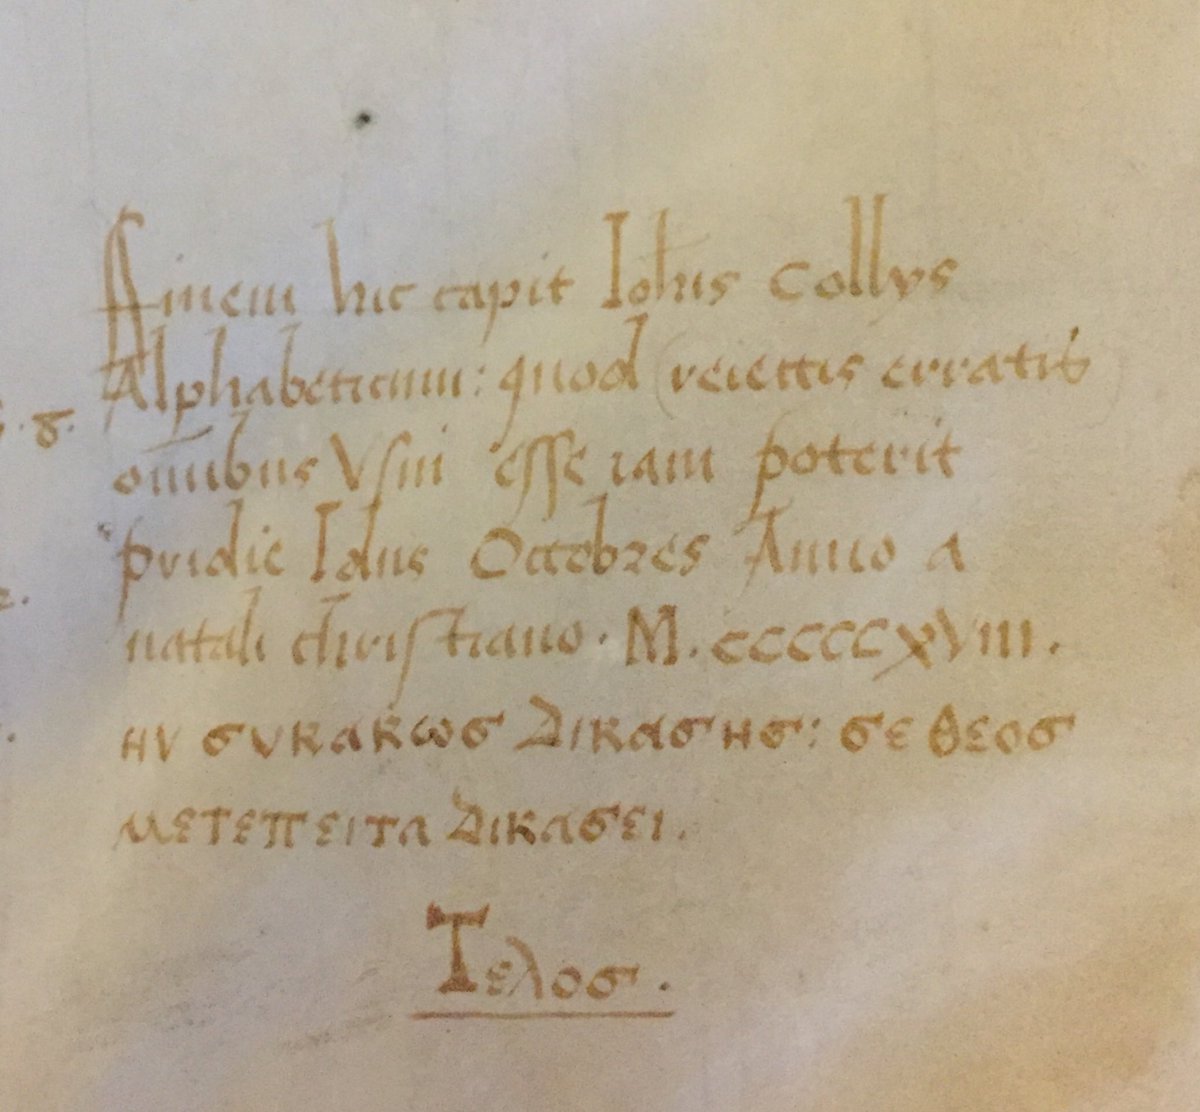 Finem hic capit Iohis Collys
Alphabeticum: quod (reiectis erratis
omibus Vsui esse iam poterit
pridie Idus Octobres Anno a
natali christiano. M. CCCCCXVIII.
ην συ κακωσ Δικασησ: σε θεοσ
μετεπειτα Δικασει.
Τελοσ.